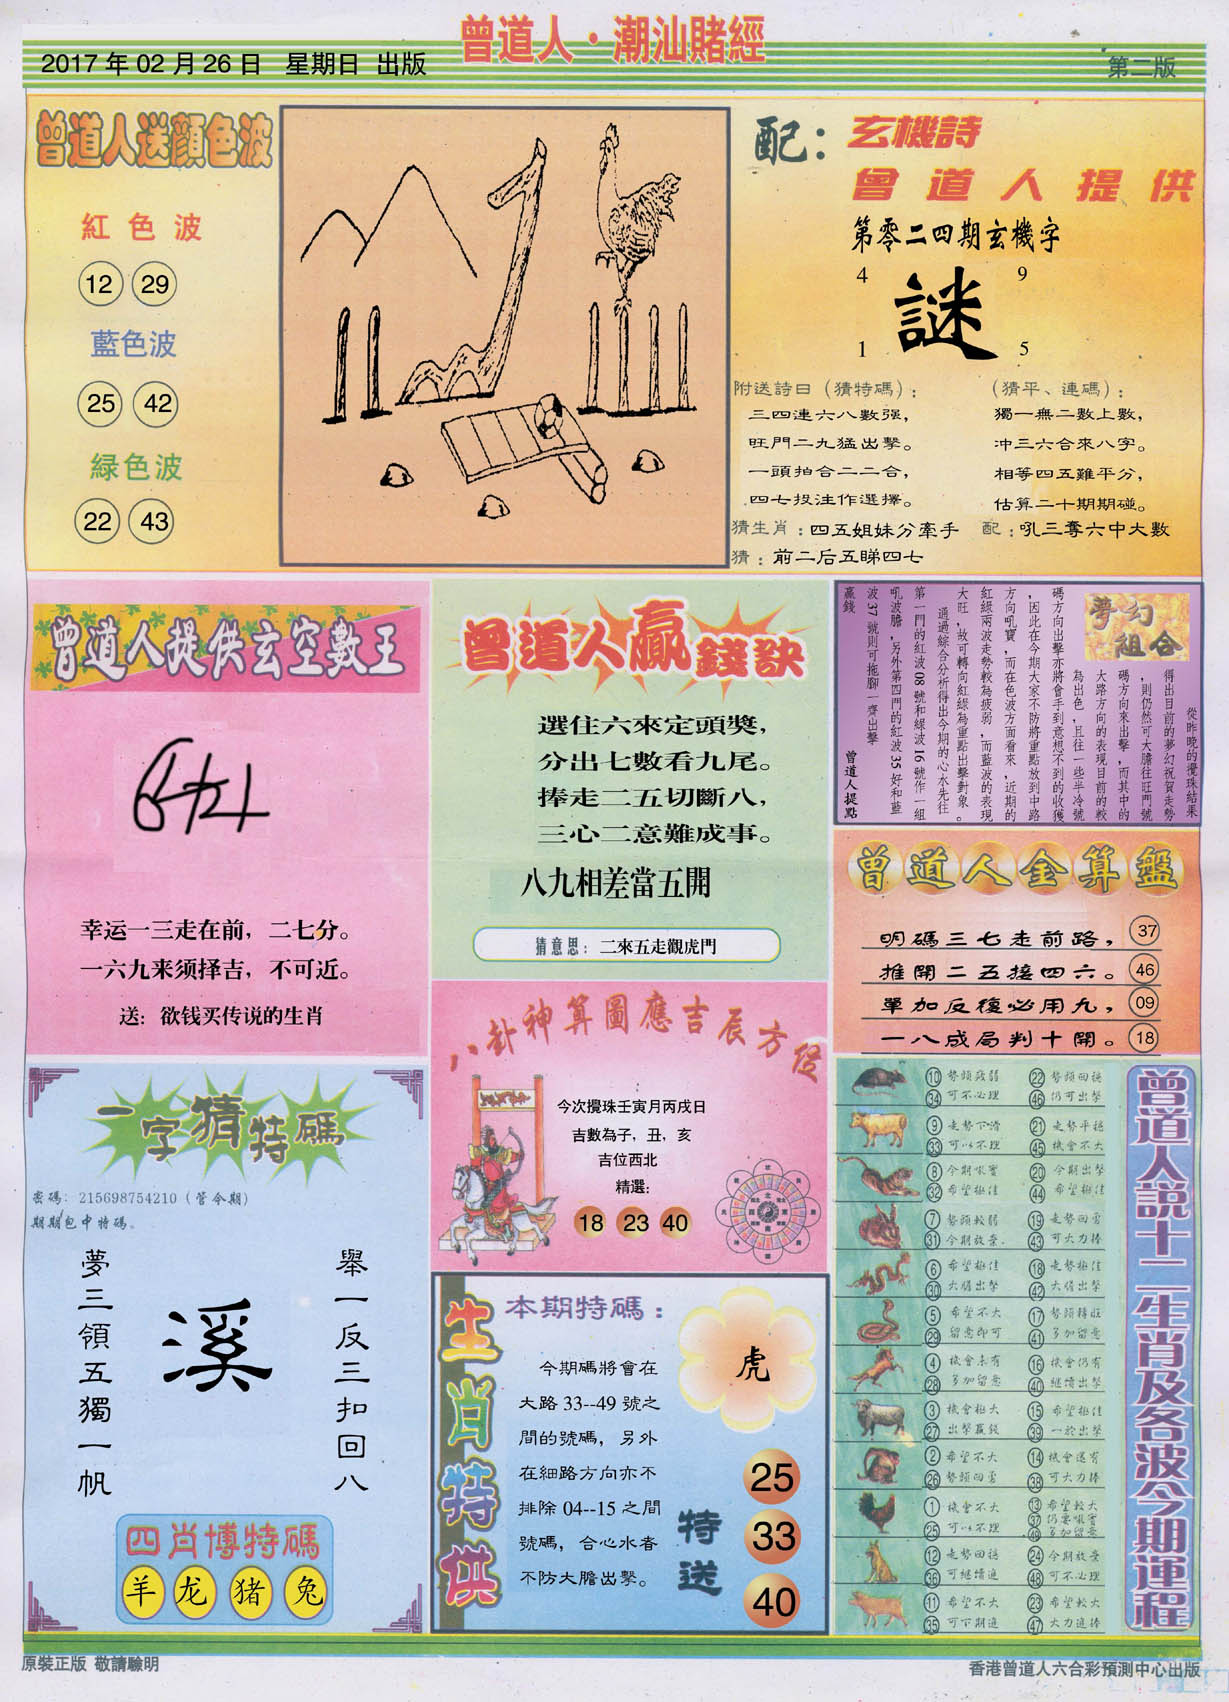 曾道人·潮汕賭經
2017年02月26日 星期日 出版
第二版
曾道人送顔色波
紅色波
12 29
藍色波
25 42
緑色波
22 43
配：玄機詩
曾道人提供
第零二四期玄機字
4 9
謎
1 5
附送詩曰（猜特碼）：
三四連六八數强，
旺門二九猛出擊。
一頭拍合二二合，
四七投注作選擇。
（猜平、連碼）：
獨一無二數上數，
冲三六合來八字。
相等四五難平分，
估算二十期期碰。
猜生肖：四五姐妹分牽手
配：吼三奪六中大數
猜：前二后五睇四七
曾道人提供玄空數王
幸运一三走在前，二七分。
一六九来须择吉，不可近。
送：欲钱买传说的生肖
曾道人贏錢訣
選住六來定頭獎，
分出七數看九尾。
捧走二五切斷八，
三心二意難成事。
八九相差當五開
猜意思：二來五走觀虎門
夢幻組合
從昨晚的攪珠結果
得出目前的夢幻祝賀走勢
，則仍然可大膽往旺門號
碼方向來出擊，而其中的
大路方向的表現目前的較
為出色，且往一些半冷號
碼方向出擊亦將會手到意想不到的收獲
，因此在今期大家不防將重點放到中路
方向吼寶，而在色波方面看來，近期的
紅綠兩波走勢較為疲弱，而藍波的表現
大旺，故可轉向紅綠為重點出擊對象。
通過綜合分析得出今期的心水先往
第一門的紅波08號和緑波16號作一組
吼波膽，另外第四門的紅波35好和藍
波37號則可拖腳一齊出擊
贏錢
曾道人提點
曾道人金算盤
明碼三七走前路， 37
推開二五接四六。 46
單加反復必用九， 09
一八成局判十開。 18
八卦神算圖應吉辰方位
今次攪珠壬寅月丙戌日
吉數為子，丑，亥
吉位西北
精選：
18 23 40
一字猜特碼
密碼：215698754210（管令期）
期期包中特碼。
舉一反三扣回八
溪
夢三領五獨一帆
四肖博特碼
羊 龙 猪 兔
生肖特供
本期特碼：
今期碼將會在
大路33--49號之
間的號碼，另外
在細路方向亦不
排除04--15之間
號碼，合心水者
不防大膽出擊。
虎
特送
25
33
40
曾道人說十二生肖及各波今期運程
10 勢頭疲弱 22 勢頭回穩
34 可不必理 46 仍可出擊
9 走勢下滑 21 走勢平穩
33 可以不理 45 機會不大
8 今期吼寶 20 今期出擊
32 希望極佳 44 希望極佳
7 勢頭較弱 19 走勢回勇
31 今期放棄 43 可大力捧
6 希望極佳 18 走勢極佳
30 大膽出擊 42 大膽出擊
5 希望不大 17 勢頭轉旺
29 留意即可 41 多加留意
4 機會未有 16 機會仍有
28 多加留意 40 繼續出擊
3 機會極大 15 希望極佳
27 出擊贏錢 39 一於出擊
2 希望不大 14 機會還有
26 勢頭回勇 38 可大力捧
1 機會不大 13 希望較大
25 可以不理 37 仍要吼實
49 多加留意
12 走勢回穩 24 今期放棄
36 可繼續追 48 可不必理
11 希望不大 23 希望較大
35 可下期追 47 大力追捧
原裝正版 敬請驗明
香港曾道人六合彩預測中心出版